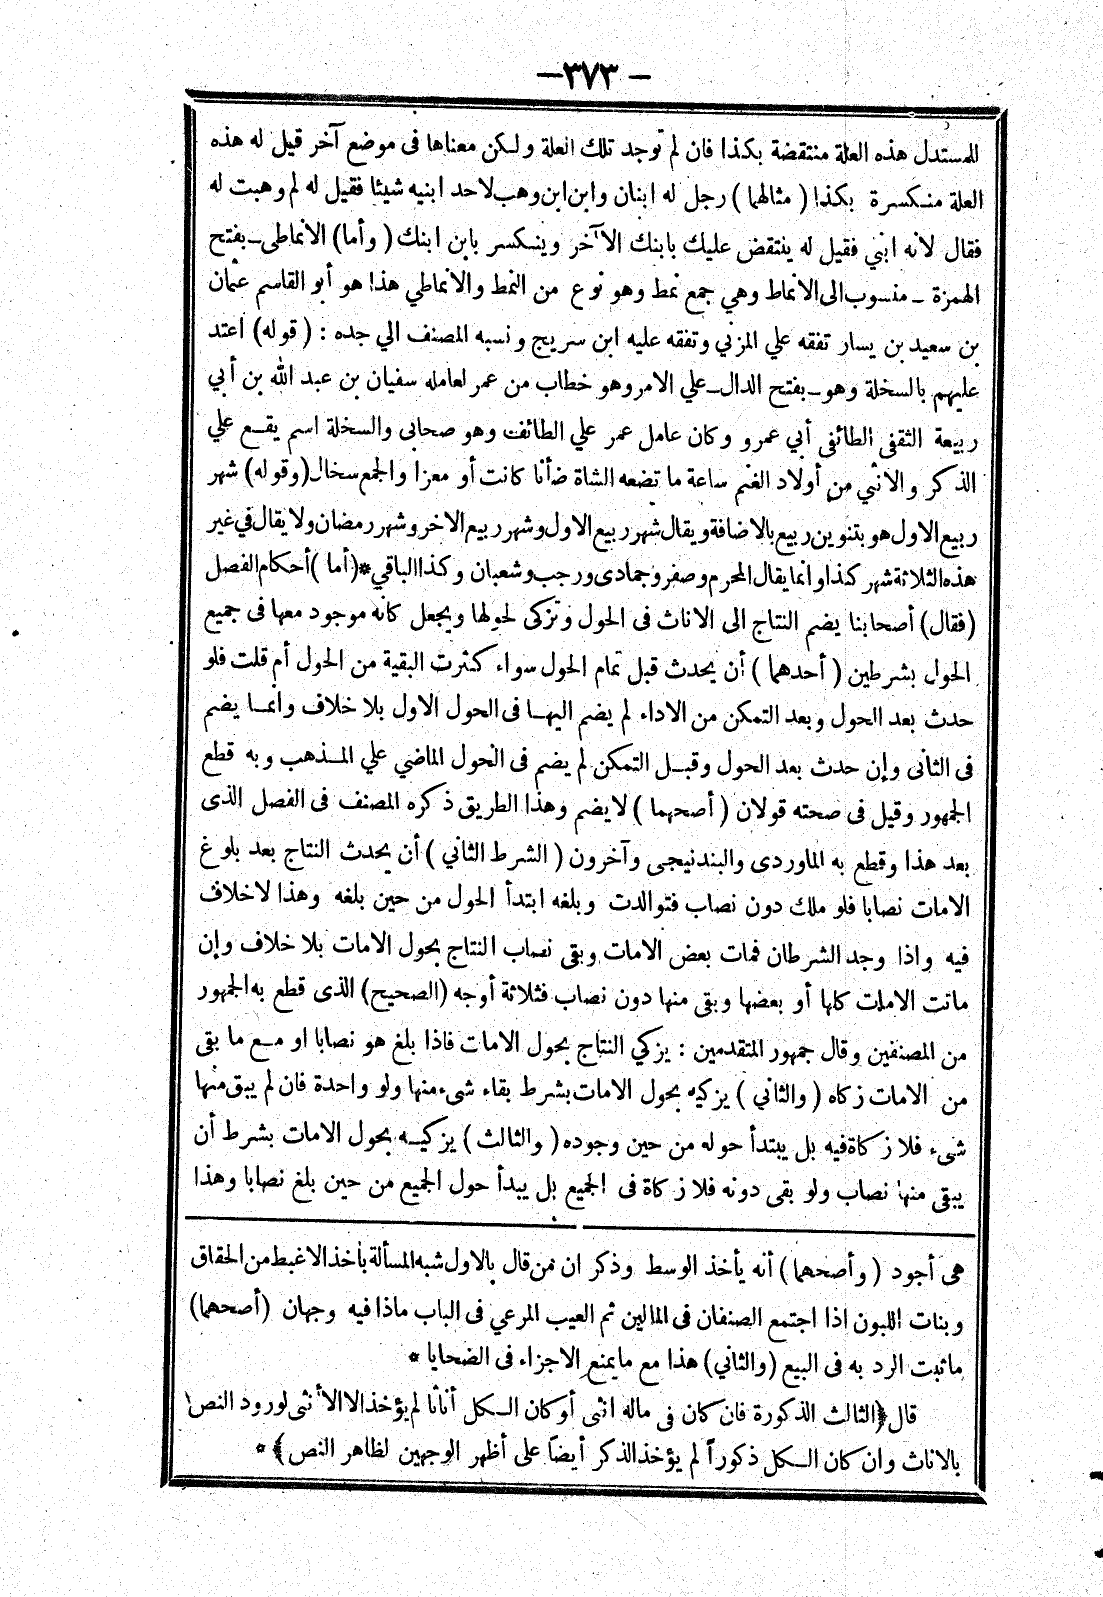 —٣٧٣—
للمستدل هذه العلة منتقضة بكذا فان لم توجد تلك العلة ولكن معناها فى موضع آخر قيل له هذه
العلة منكسرة بكذا ( مثالهما ) رجل له ابنان وابن ابن وهب لاحد ابنيه شيئا فقيل له لم وهبت له
فقال لانه ابني فقيل له ينتقض عليك بابنك الآخر وينكسر بابن ابنك ( وأما ) الانماطى ـ بفتح
الهمزة ـ منسوب الى الانماط وهي جمع نمط وهو نوع من النمط والانماطي هذا هو أبو القاسم عثمان
بن سعيد بن يسار تفقه علي المزني وتفقه عليه ابن سريج ونسبه المصنف الي جده : ( قوله ) اعتد
عليهم بالسخلة وهو ـ بفتح الدال ـ علي الامر وهو خطاب من عمر لعامله سفيان بن عبد الله بن أبي
ربيعة الثقفى الطائفى أبي عمرو وكان عامل عمر علي الطائف وهو صحابى والسخلة اسم يقع علي
الذكر والانثي من أولاد الغنم ساعة ما تضعه الشاة ضأنا كانت أو معزا والجمع سخال ( وقوله ) شهر
ربيع الاول هو بتنوين ربيع بالاضافة ويقال شهر ربيع الاول وشهر ربيع الاخر وشهر رمضان ولا يقال في غير
هذه الثلاثة شهر كذا وانما يقال المحرم وصفر وجمادى ورجب وشعبان وكذا الباقي * ( أما ) أحكام الفصل
( فقال ) أصحابنا يضم النتاج الى الاناث فى الحول وتزكى لحولها ويجعل كانه موجود معها فى جميع
الحول بشرطين ( أحدهما ) أن يحدث قبل تمام الحول سواء كثرت البقية من الحول أم قلت فلو
حدث بعد الحول وبعد التمكن من الاداء لم يضم اليها فى الحول الاول بلا خلاف وانما يضم
فى الثانى وإن حدث بعد الحول وقبل التمكن لم يضم فى الحول الماضي علي المذهب وبه قطع
الجمهور وقيل فى صحته قولان ( أصحهما ) لا يضم وهذا الطريق ذكره المصنف فى الفصل الذى
بعد هذا وقطع به الماوردى والبندنيجى وآخرون ( الشرط الثاني ) أن يحدث النتاج بعد بلوغ
الامات نصابا فلو ملك دون نصاب فتوالدت وبلغه ابتدأ الحول من حين بلغه وهذا لا خلاف
فيه واذا وجد الشرطان فمات بعض الامات وبقى نصاب النتاج بحول الامات بلا خلاف وإن
ماتت الامات كلها أو بعضها وبقى منها دون نصاب فثلاثة أوجه ( الصحيح ) الذى قطع به الجمهور
من المصنفين وقال جمهور المتقدمين : يزكي النتاج بحول الامات فاذا بلغ هو نصابا او مع ما بقى
من الامات زكاه ( والثاني ) يزكيه بحول الامات بشرط بقاء شىء منها ولو واحدة فان لم يبق منها
شىء فلا زكاة فيه بل يبتدأ حوله من حين وجوده ( والثالث ) يزكيه بحول الامات بشرط أن
يبقى منها نصاب ولو بقى دونه فلا زكاة فى الجميع بل يبدأ حول الجميع من حين بلغ نصابا وهذا
هى أجود ( وأصحهما ) أنه يأخذ الوسط وذكر ان من قال بالاول شبه المسألة بأخذ الاغبط من الحقاق
وبنات اللبون اذا اجتمع الصنفان فى المالين ثم العيب المرعي فى الباب ماذا فيه وجهان ( أصحهما )
ما ثبت الرد به فى البيع ( والثاني ) هذا مع ما يمنع الاجزاء فى الضحايا *
قال ﴿ الثالث الذكورة فان كان فى ماله انثى أو كان الكل أناثا لم يؤخذ الا الأنثى لورود النص
بالاناث وان كان الكل ذكوراً لم يؤخذ الذكر أيضاً على أظهر الوجهين لظاهر النص ﴾ *